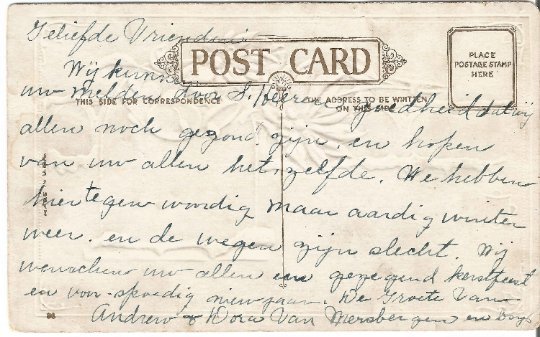 Geliefde Vriendin
POST CARD
PLACE
POSTAGE STAMP
HERE
Wij kunnen
uw melden door S. Heeren goedheid dat wij
THIS SIDE FOR CORRESPONDENCE
THE ADDRESS TO BE WRITTEN
ON THIS SIDE
allen nog gezond zijn, en hopen
van uw allen het zelfde. We hebben
hier tegen woordig maar aardig winter
weer, en de wegen zijn slecht. Wij
wenschen uw allen een gezegend kerstfeest
en voor-spoedig nieuwjaar. De Groete Van
Andrew & Dora Van Mersbergen en Boys